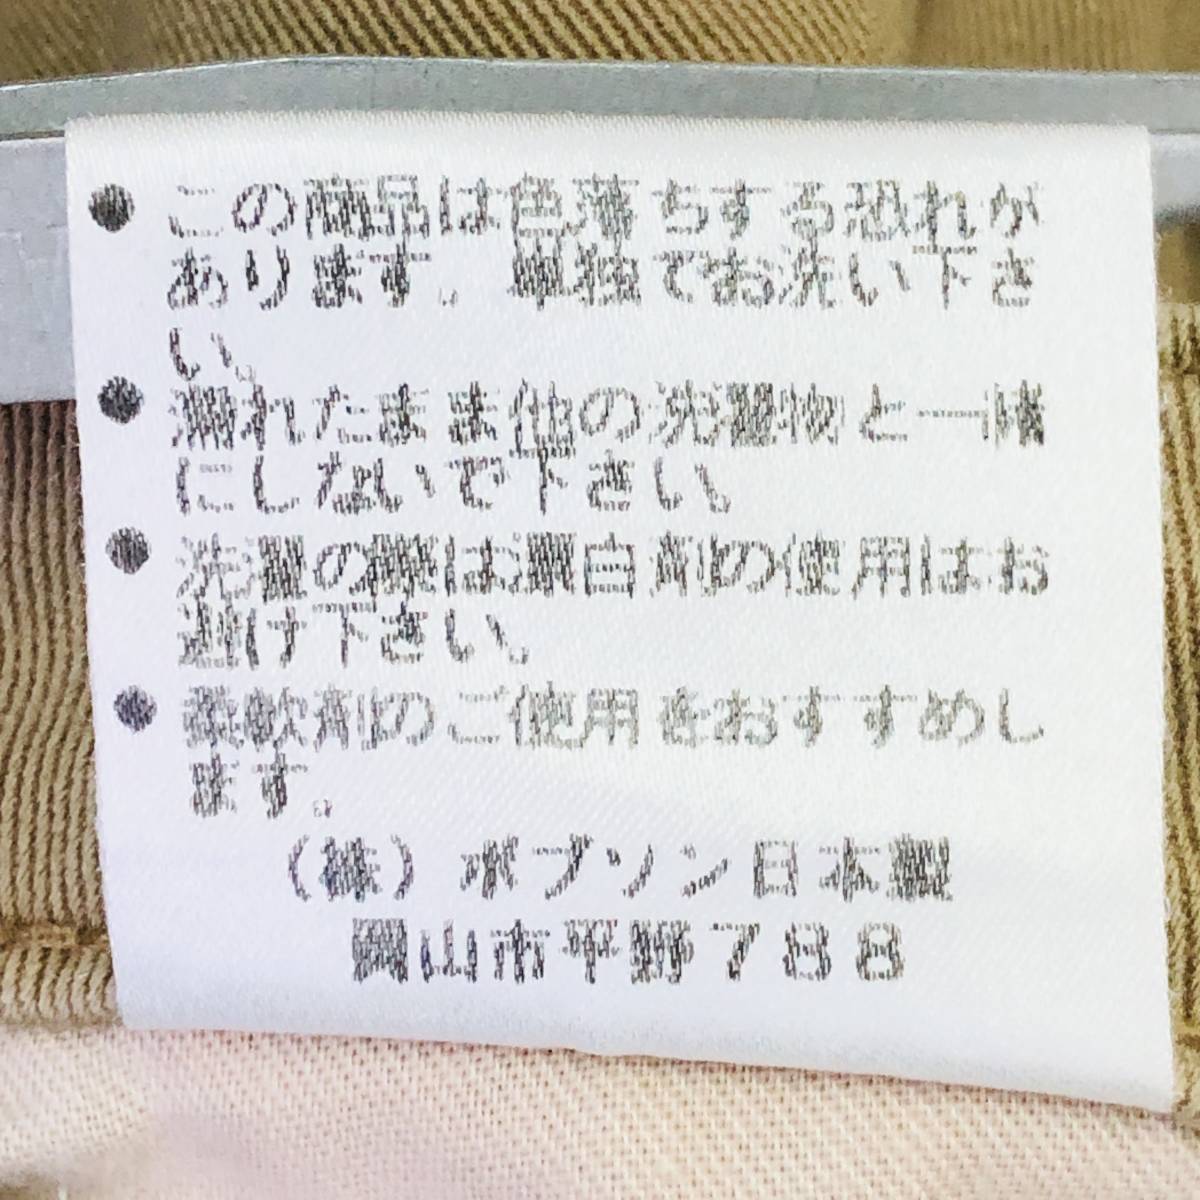 ●この商品は色落ちする恐れが
あります。単独でお洗い下さ
い。
●濡れたまま他の洗濯物と一緒
にしないで下さい。
●洗濯の際は蛍白剤の使用はお
避け下さい。
●柔軟剤のご使用をおすすめし
ます。
(株)ボブソン日本製
岡山市平野788